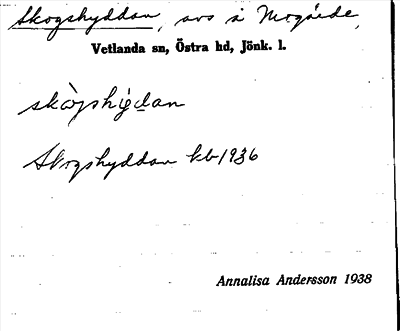 Skogshyddan, avs å Mogärde,
Vetlanda sn, Östra hd, Jönk. l.
Skogshyddan kb 1936
Annalisa Andersson 1938